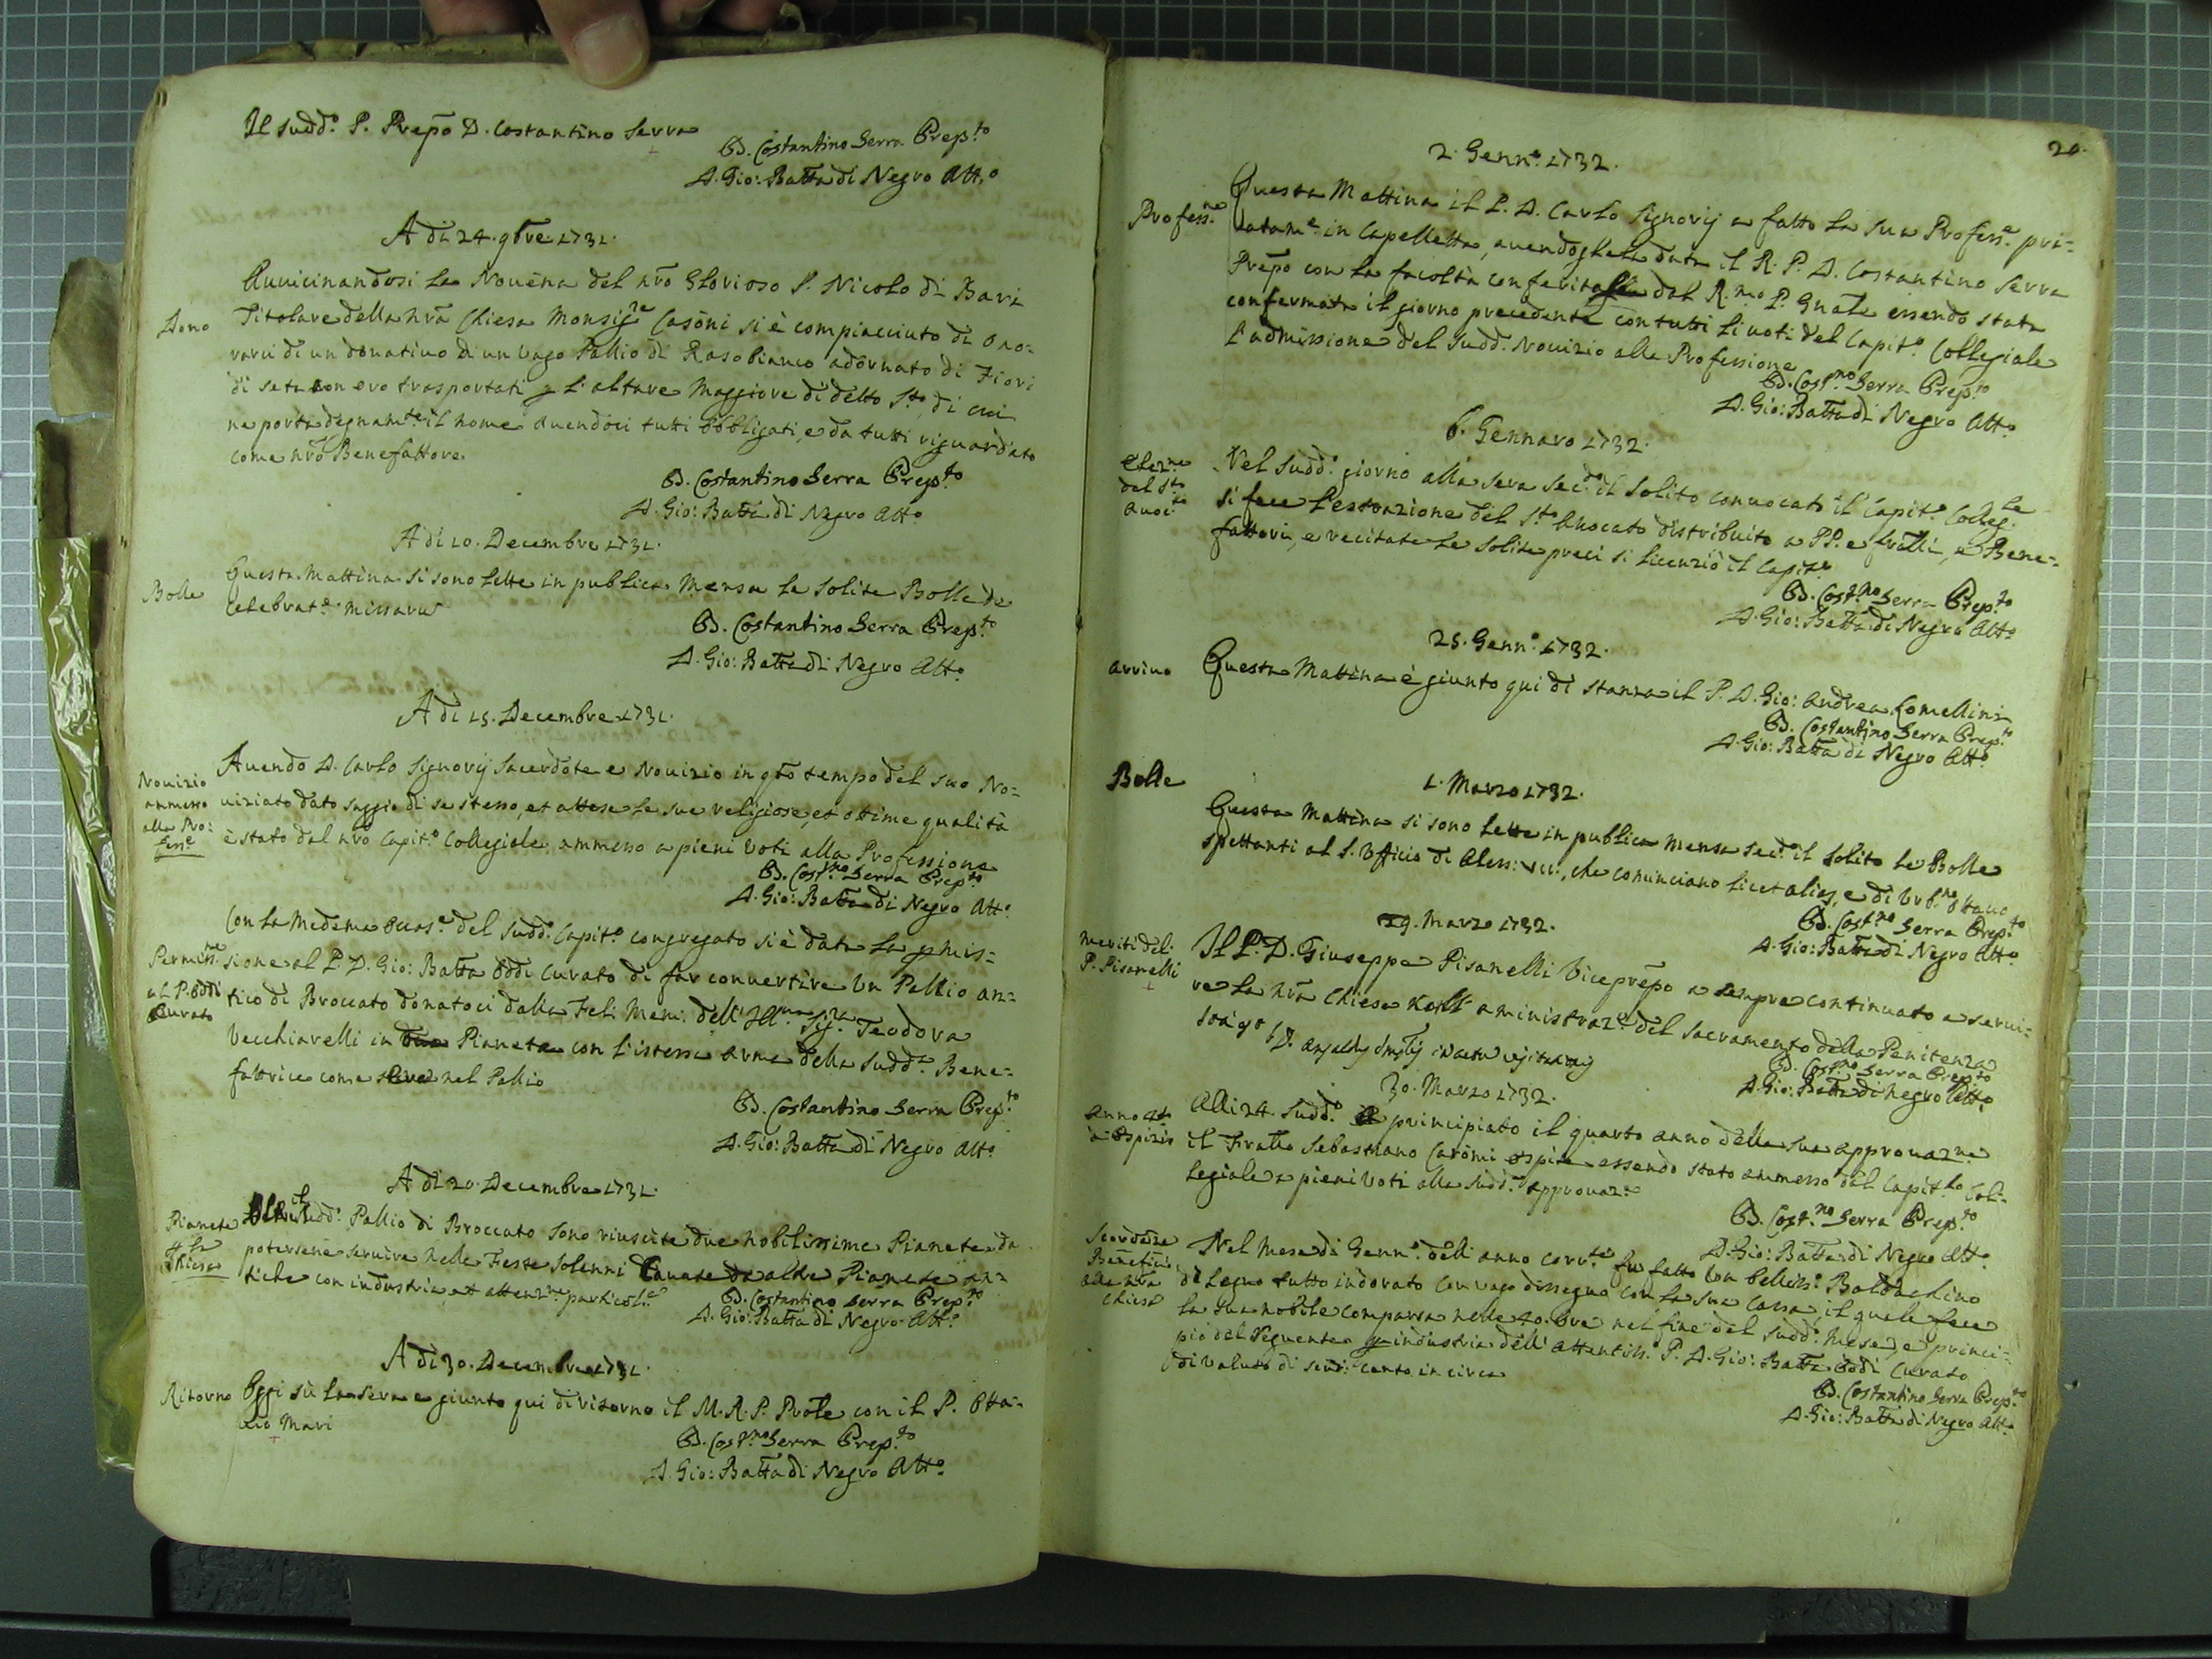 Il sudd.º P. Prep̃o D. Costantino Serra
D. Costantino Serra Prep.to
D. Gio: Batta di Negro Att.o
A di 24. 9bre 1731.
Dono
Auuicinandosi la Nouena del nr̃o Glorioso S. Nicolo di Bari
Titolare della nr̃a Chiesa Monsig.re Casoni si è compiacciuto di ono-
rarci di un donatiuo di un vago Pallio di Raso bianco adornato di Fiori
di seta con oro trasportati p l'altare Maggiore di detto S.to, di cui
ne porta degnam.te il nome auendoci tutti obbligati, e da tutti riguardato
come nr̃o Benefattore.
D. Costantino Serra Prep.to
D. Gio: Batta di Negro Att.o
A di 10. Decembre 1731.
Bolle
Questa Mattina si sono lette in publica Mensa le solite Bolle de
celebrat.e missarũ
D. Costantino Serra Prep.to
D. Gio: Batta di Negro Att.o
A di 15. Decembre 1731.
Nouizio
ammesso
alla Pro:
fess.e
Auendo D. Carlo Signorij Sacerdote e Nouizio in q̃to tempo del suo No-
uiziato dato saggio di se stesso, et attese le sue religiose, et ottime qualità
è stato dal nr̃o Capit.o Collegiale ammesso a pieni voti alla Professione
D. Cost.no Serra Prep.to
D. Gio: Batta di Negro Att.o
Permiss.ne
al P. Oddi
Curato
Con la medema occas.e del sudd.o Capit.o congregato si è data la pmis-
sione al P. D. Gio: Batta Oddi Curato di far conuertire un Pallio an-
tico di Broccato donatoci dalla Fel: Mem: dell' Ill.ma Sig.ra Teodora
Vecchiarelli in Pianeta con l'istessa arma della sudd.a Bene-
fattrice come staua nel Pallio
D. Costantino Serra Prep.to
D. Gio: Batta di Negro Att.o
A di 20. Decembre 1731.
Pianete
p la
Chiesa
sudd.o Pallio di Broccato sono riuscite due nobilissime Pianete da
potersene seruire nelle Feste solenni cauate da altre Pianete an-
tiche con industria, et attenz.ne particol.e
D. Costantino Serra Prep.to
D. Gio: Batta di Negro Att.o
A di 30. Decembre 1731.
Ritorno
Oggi sù la sera e giunto qui di ritorno il M. R. P. Prõle con il P. Otta-
uio Mari
D. Cost.no Serra Prep.to
D. Gio: Batta di Negro Att.o
20.
2. Genn.o 1732.
Profess.ne
Questa Mattina il P. D. Carlo Signorij a fatto la sua Profess.e pri-
uatam.e in Capelletta, auendogliela data il R. P. D. Costantino Serra
Prep̃o con la facoltà conferita dal R.mo P. Gnãle essendo stata
confermata il giorno precedente con tutti li uoti del Capit.o Collegiale
l'admissione del sudd.o Nouizio alla Professione
D. Cost.no Serra Prep.to
D. Gio: Batta di Negro Att.o
6. Gennaro 1732.
Elez.ne
del S.to
Auoc.to
Nel sudd.o giorno alla sera sec.do il solito conuocato il Capit.o Colleg.le
si fece l'estrazione del S.to Auocato distribuito a PP. e fratlli, e Bene-
fattori, e recitate le solite preci si licenziò il Capit.o
D. Cost.no Serra Prep.to
D. Gio: Batta di Negro Att.o
25. Genn.o 1732.
Arriuo
Questa Mattina è giunto qui di stanza il P. D. Gio: Andrea Lomellini
D. Costantino Serra Prep.to
D. Gio: Batta di Negro Att.o
1. Marzo 1732.
Bolle
Questa Mattina si sono lette in publica mensa sec.do il solito le Bolle
spettanti al S. Vfficio di Aless: VII:, che cominciano licet alias, e di Vrb.no Ottauo
D. Cost.no Serra Prep.to
D. Gio: Batta di Negro Att.o
29. Marzo 1732.
Meriti del
P. Pisanelli
Il P. D. Giuseppe Pisanelli Viceprep̃o a sempre continuato a serui-
re la nr̃a Chiesa nell' aministraz.e del sacramento della Penitenza
D. Cost.no Serra Prep.to
D. Gio: Batta di Negro Att.o
30. Marzo 1732.
Anno 4.to
Alli 24. sudd.o principiato il quarto anno della sua approuaz.ne
il Fratello Sebastiano Caromi ospite essendo stato ammesso dal Capit.lo Col-
legiale a pieni voti alla sudd.a approuaz.e
D. Cost.no Serra Prep.to
D. Gio: Batta di Negro Att.o
alla nr̃a
Chiesa
Nel mese di Genn.o dell' anno corr.te fu fatto un belliss.o Baldachino
di legno tutto indorato con uago dissegno con la sua Cassa, il quale fece
la sua nobile comparsa nelle 40. ore nel fine del sudd.o mese, e princi-
pio del seguente p industria dell' attentiss.o P. D. Gio: Batta Oddi Curato
di ualuta di scudi cento in circa
D. Costantino Serra Prep.to
D. Gio: Batta di Negro Att.o